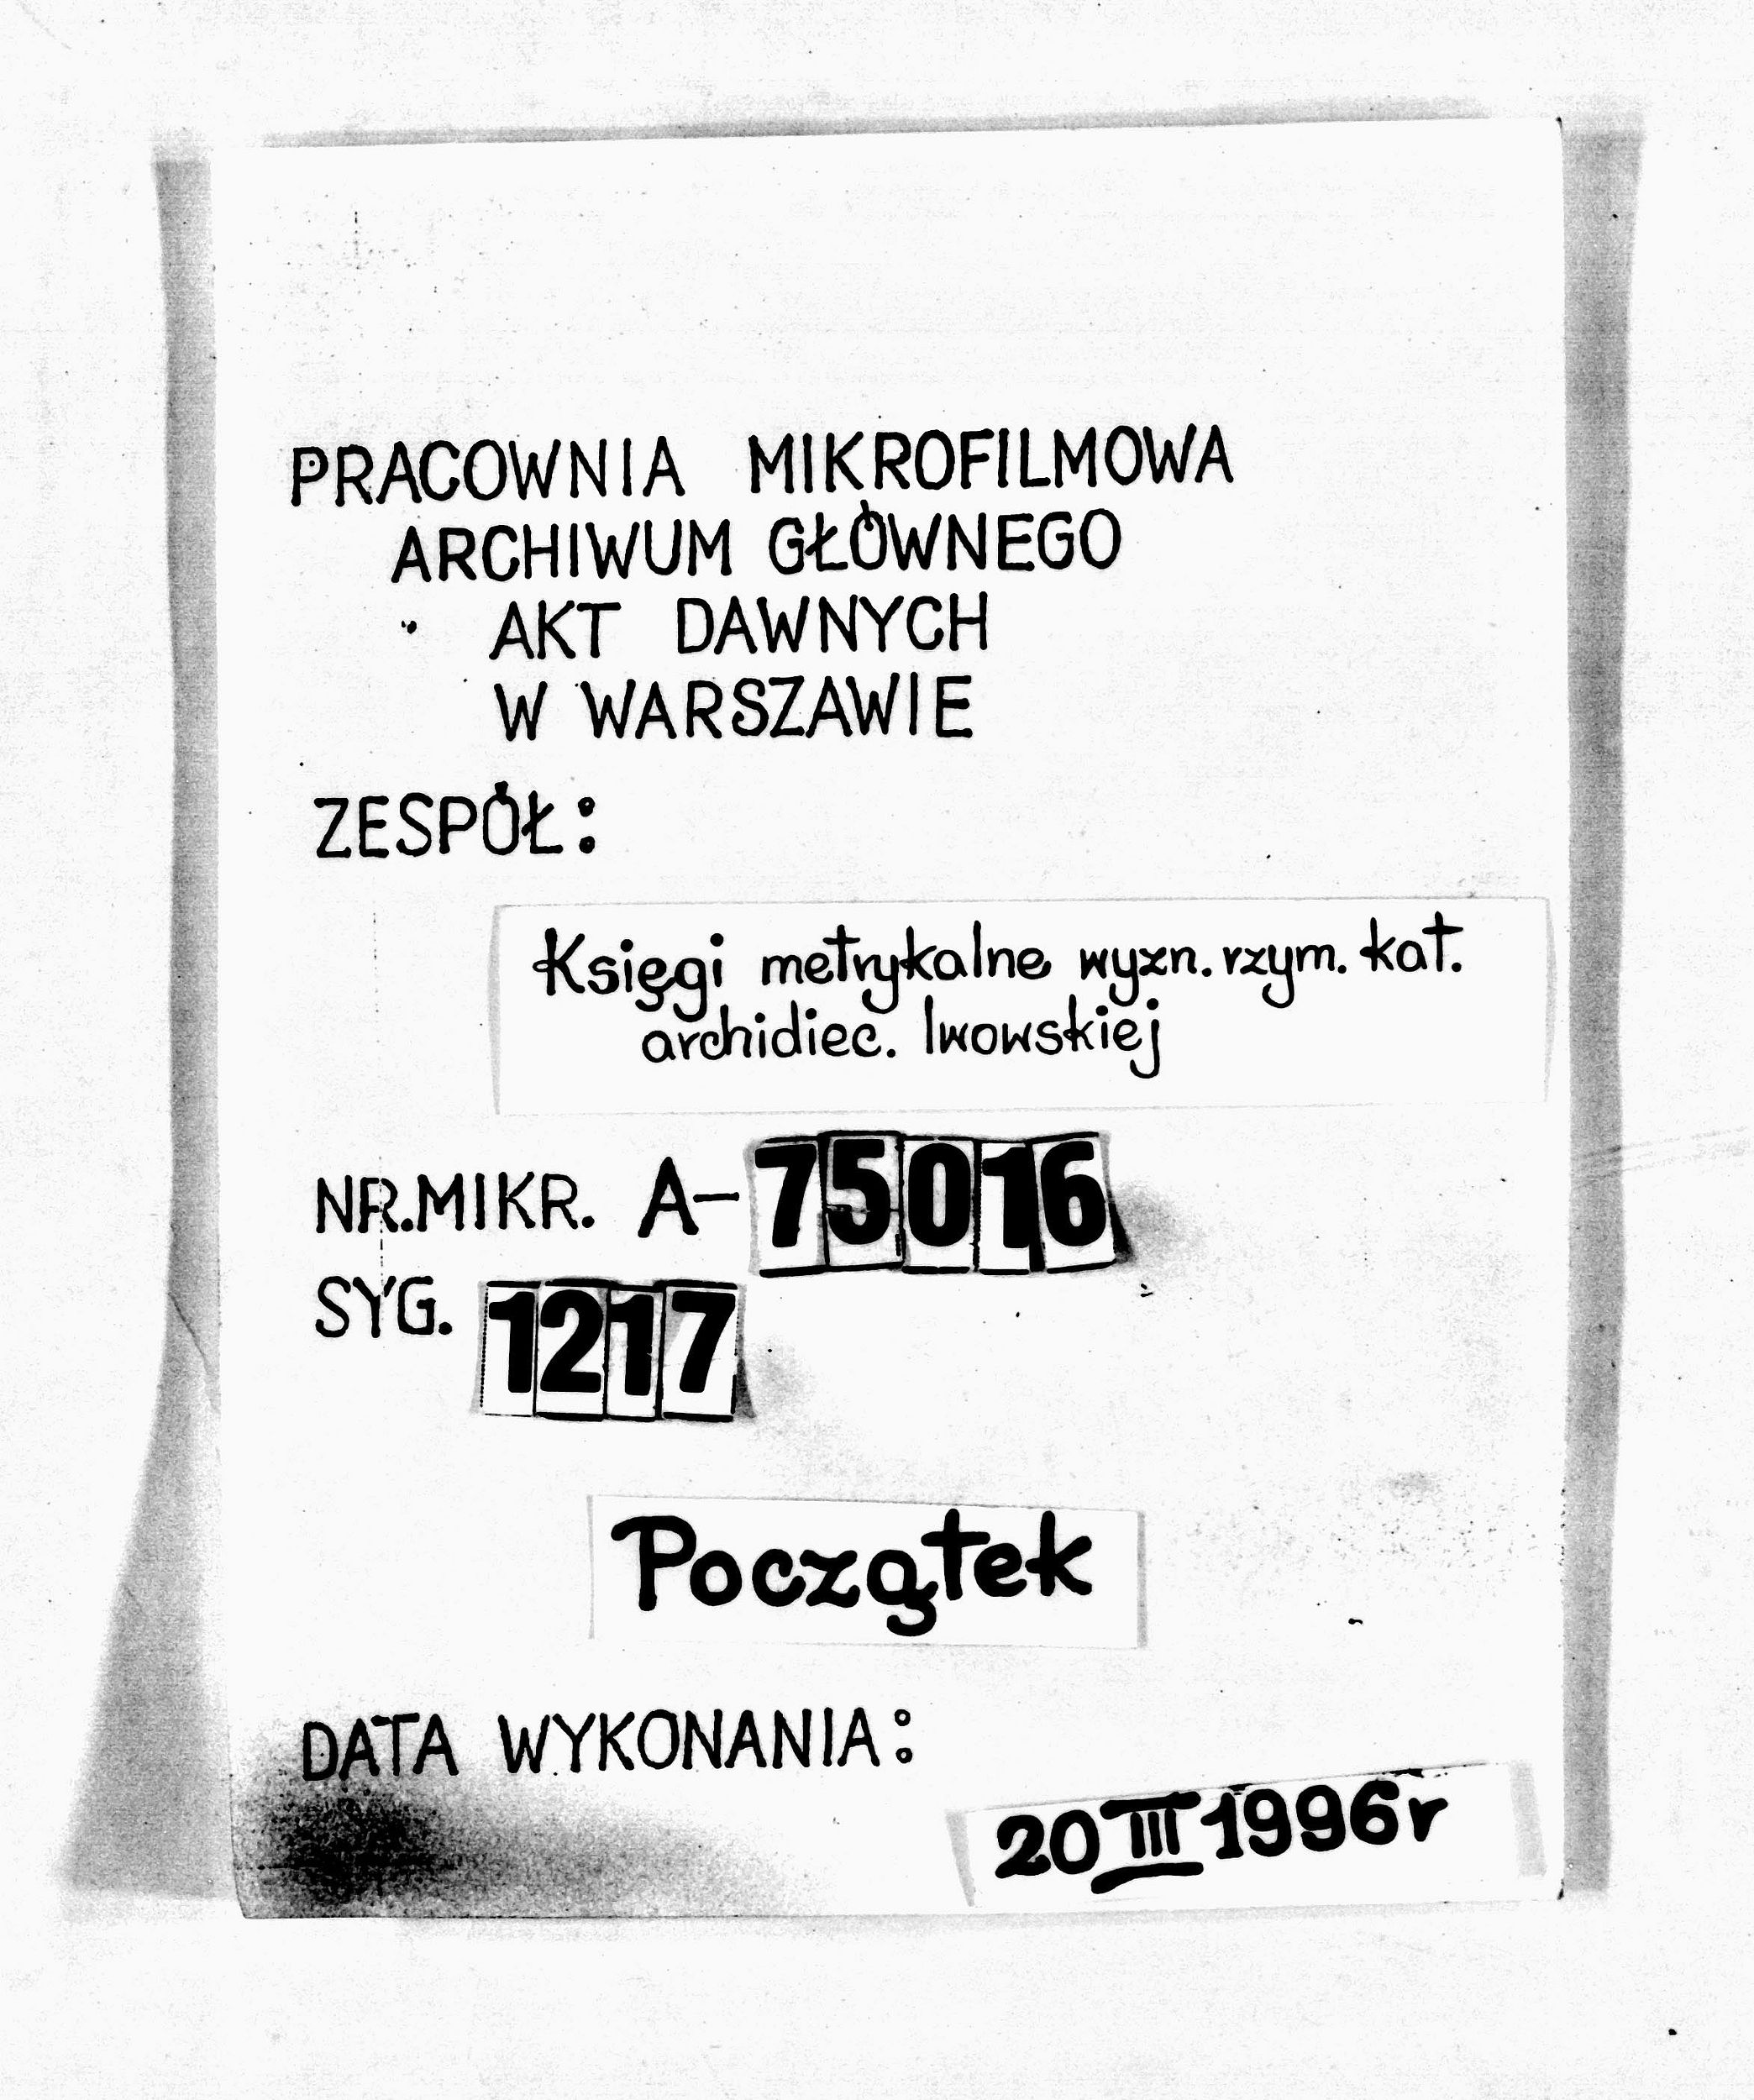 PRACOWNIA MIKROFILMOWA
ARCHIWUM GŁÓWNEGO
AKT DAWNYCH
W WARSZAWIE
ZESPÓŁ:
Księgi metrykalne wyzn. rzym. kat.
archidiec. lwowskiej
NR.MIKR. A-75016
SYG. 1217
Początek
DATA WYKONANIA:
20 III 1996r